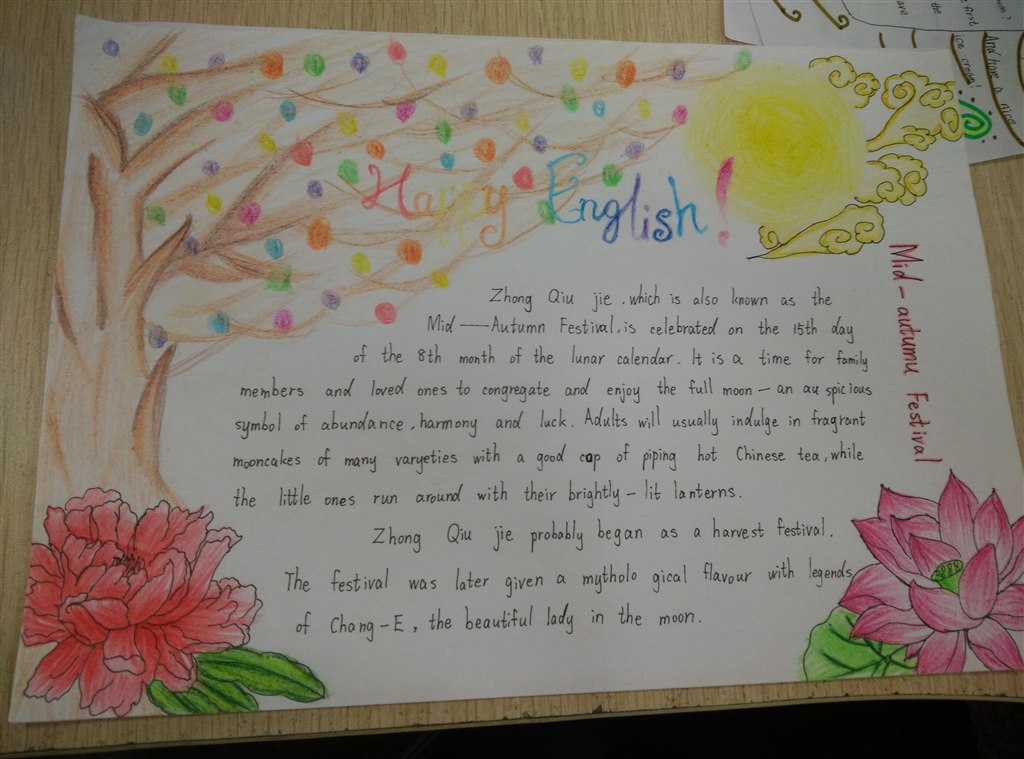 Happy English!
Mid-autumu Festival
Zhong Qiu jie, which is also known as the
Mid—Autumn Festival, is celebrated on the 15th day
of the 8th month of the lunar calendar. It is a time for family
members and loved ones to congregate and enjoy the full moon - an au spicious
symbol of abundance, harmony and luck. Adults will usually indulge in fragrant
mooncakes of many varyeties with a good cup of piping hot Chinese tea, while
the little ones run around with their brightly-lit lanterns.
Zhong Qiu jie probably began as a harvest festival.
The festival was later given a mytholo gical flavour with legends
of Chang-E, the beautiful lady in the moon.
first
the
have
ice cream!
And have a nice